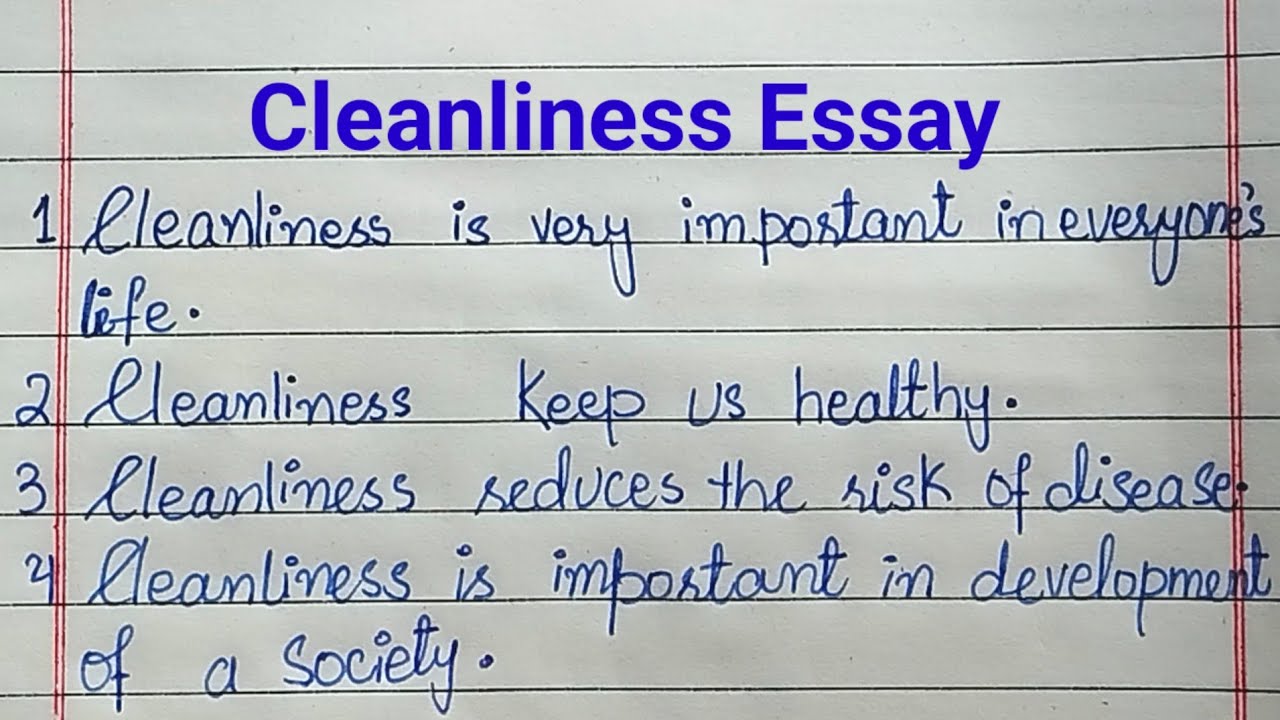 Cleanliness Essay
1 Cleanliness is very important in everyone's
life.
2 Cleanliness Keep us healthy.
3 Cleanliness reduces the risk of disease.
4 Cleanliness is important in development
of a society.